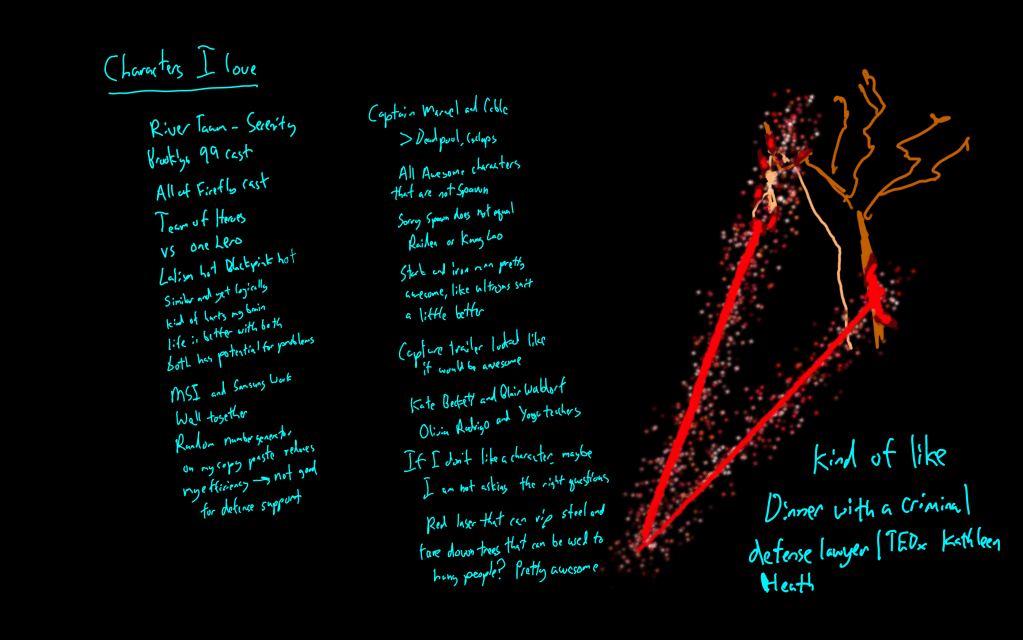 Characters I love
River Tam - Serenity
Brooklyn 99 cast
All of Firefly cast
Team of Heroes
vs one hero
hot Blackpink hot
Similar and yet logically
kind of hurts my brain
life is better with both
both has potential for problems
MSI and Samsung Work
Well together
Random number generator
on my copy paste reduces
my efficiency → not good
for defence support
Captain Marvel and Cable
> Deadpool, Cyclops
All Awesome characters
that are not Spawn
Sorry Spawn does not equal
Raiden or Kung Lao
Stark and iron man pretty
awesome, like ultrons suit
a little better
Capture trailer looked like
it would be awesome
Kate Beckett and Blair Waldorf
Olivia Rodrigo and Yoga teachers
If I don't like a character, maybe
I am not asking the right questions
Red laser that can rip steel and
down trees that can be used to
hang people? Pretty awesome
Kind of like
Dinner with a criminal
defense lawyer | TEDx Kathleen
Heath